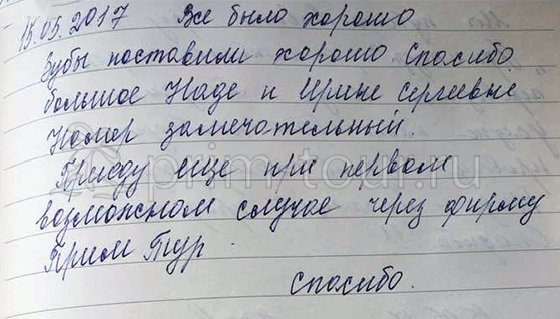 15.05.2017 Все было хорошо
Зубы поставили хорошо Спасибо
большое Наде и Ирине Сергеевне
Номер замечательный.
Приеду еще при первом
возможном случае через фирму
Прим Тур.
Спасибо.
primtour.ru